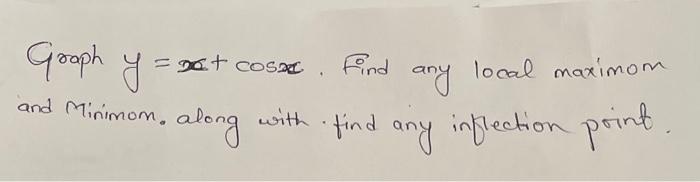 Graph y = x + cosx. Find any local maximom
and Minimom. along with . find any inflection point.